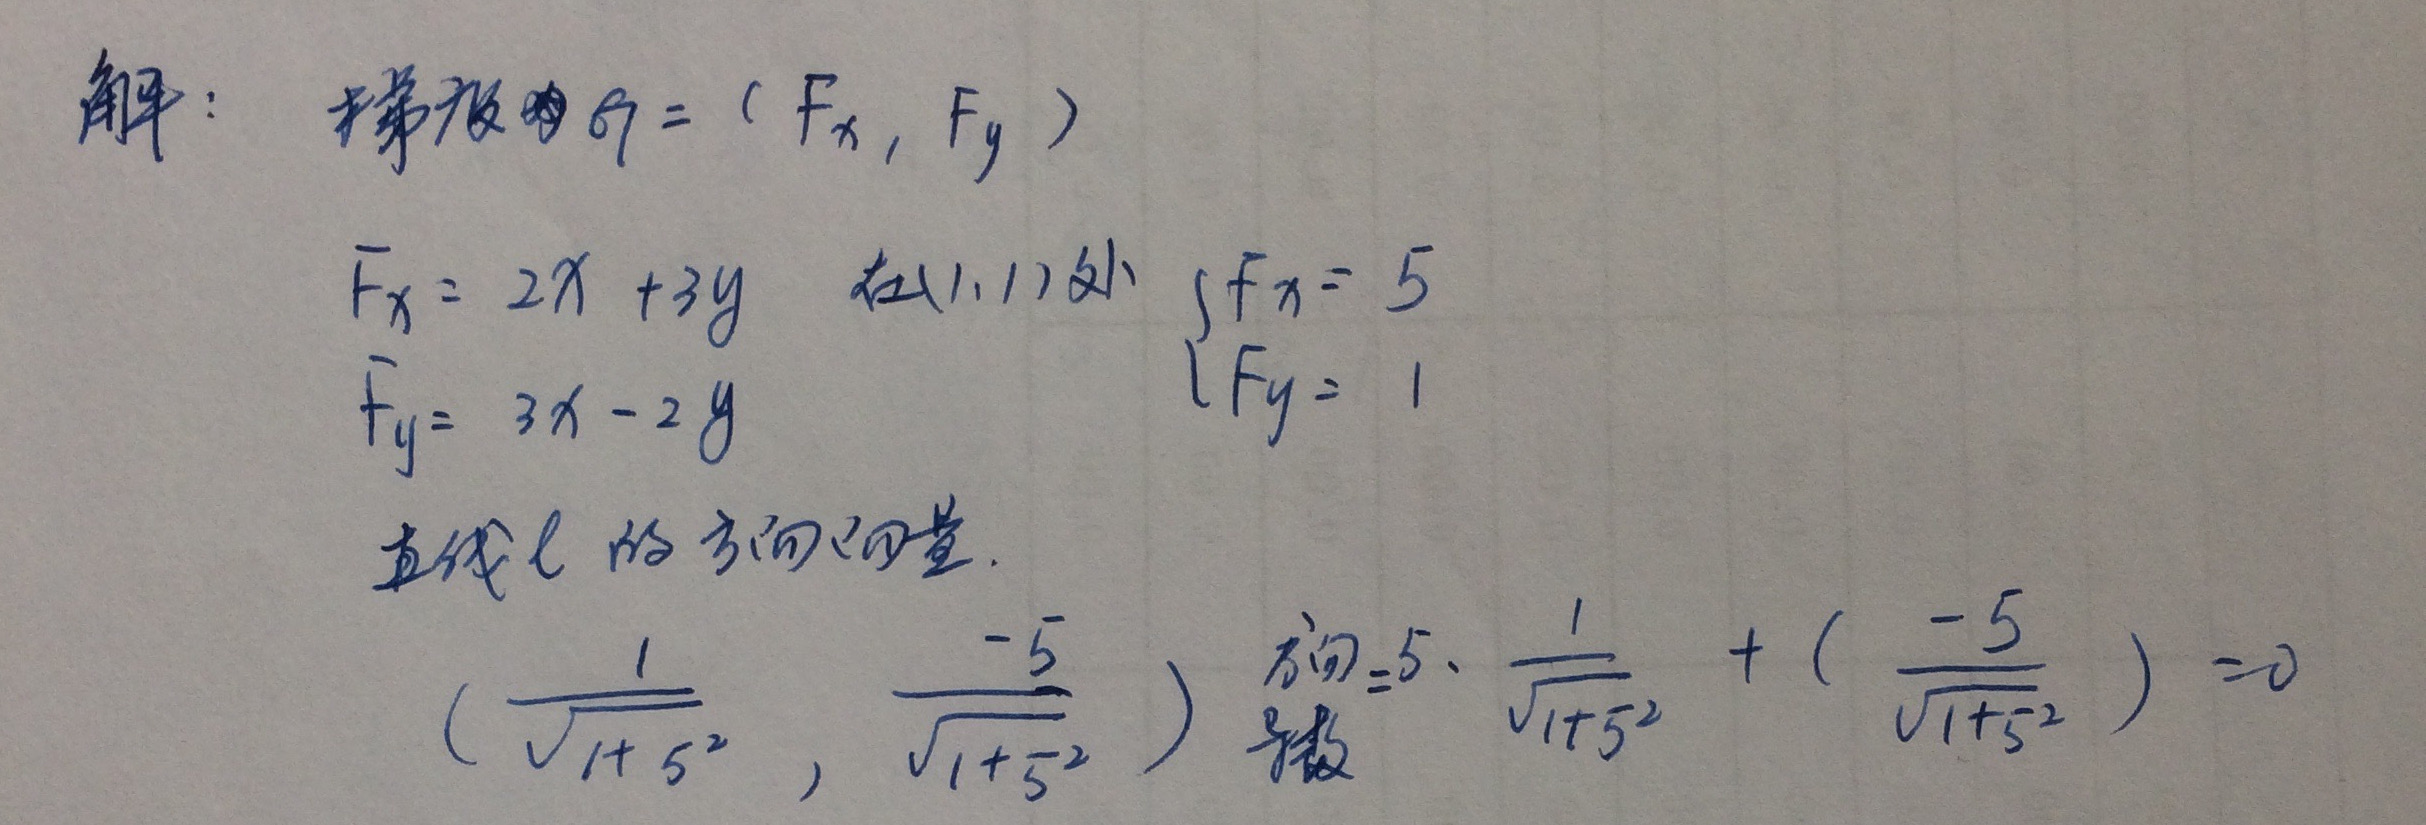 解: 梯度 G = ( Fx, Fy )
Fx = 2x + 3y 在(1,1)处 { Fx = 5
Fy = 3x - 2y { Fy = 1
直线 l 的方向向量.
( 1/√(1+5²) , -5/√(1+5²) ) 方向导数 = 5· 1/√(1+5²) + ( -5/√(1+5²) ) = 0